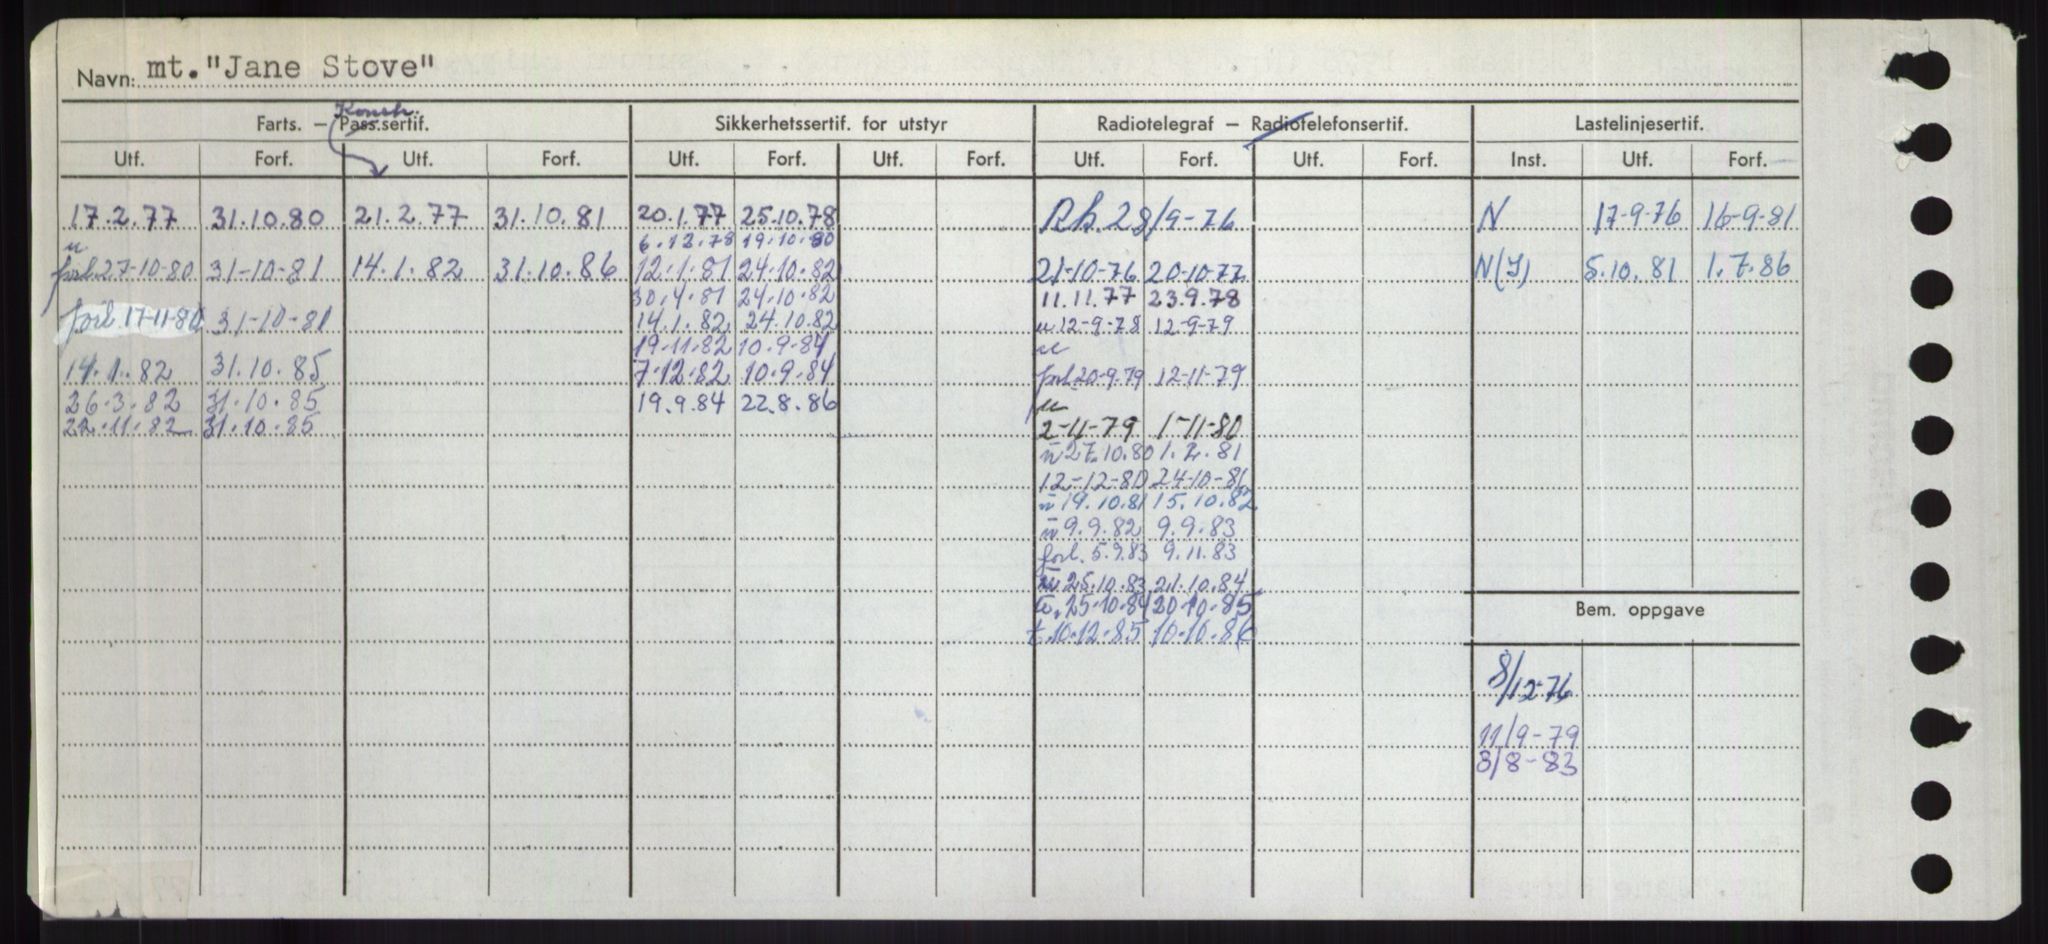 Navn: mt."Jane Stove"
Konstr.
Farts. — Pass.sertif. Sikkerhetssertif. for utstyr Radiotelegraf — Radiotelefonsertif. Lastelinjesertif.
Utf. Forf. Utf. Forf. Utf. Forf. Utf. Forf. Utf. Forf. Utf. Forf. Inst. Utf. Forf.
17.2.77 31.10.80 21.2.77 31.10.81 20.1.77 25.10.78 Rh. 28/9-76 N 17-9-76 16-9-81
u 6.12.78 19.10.80
forl. 27-10-80 31-10-81 14.1.82 31.10.86 12.1.81 24.10.82 21-10-76 20-10-77 N(I) 5.10.81 1.7.86
30.4.81 24.10.82 11.11.77 23.9.78
forl. 17-11-80 31-10-81 14.1.82 24.10.82 u 12-9-78 12-9-79
19.11.82 10.9.84 u
14.1.82 31.10.85 7.12.82 10.9.84 forl. 20-9.79 12-11-79
26.3.82 31.10.85 19.9.84 22.8.86 u
22.11.82 31.10.85 2-11-79 1-11-80
u 27.10.80 1.2.81
12-12-80 24-10-81
u 19.10.81 15.10.82
u 9.9.82 9.9.83
forl. 5.9.83 9.11.83
u 25.10.83 21.10.84
to. 25.10.84 20.10.85 Bem. oppgave
t. 10.12.85 10.10.86
8/12-76
11/9-79
3/8-83